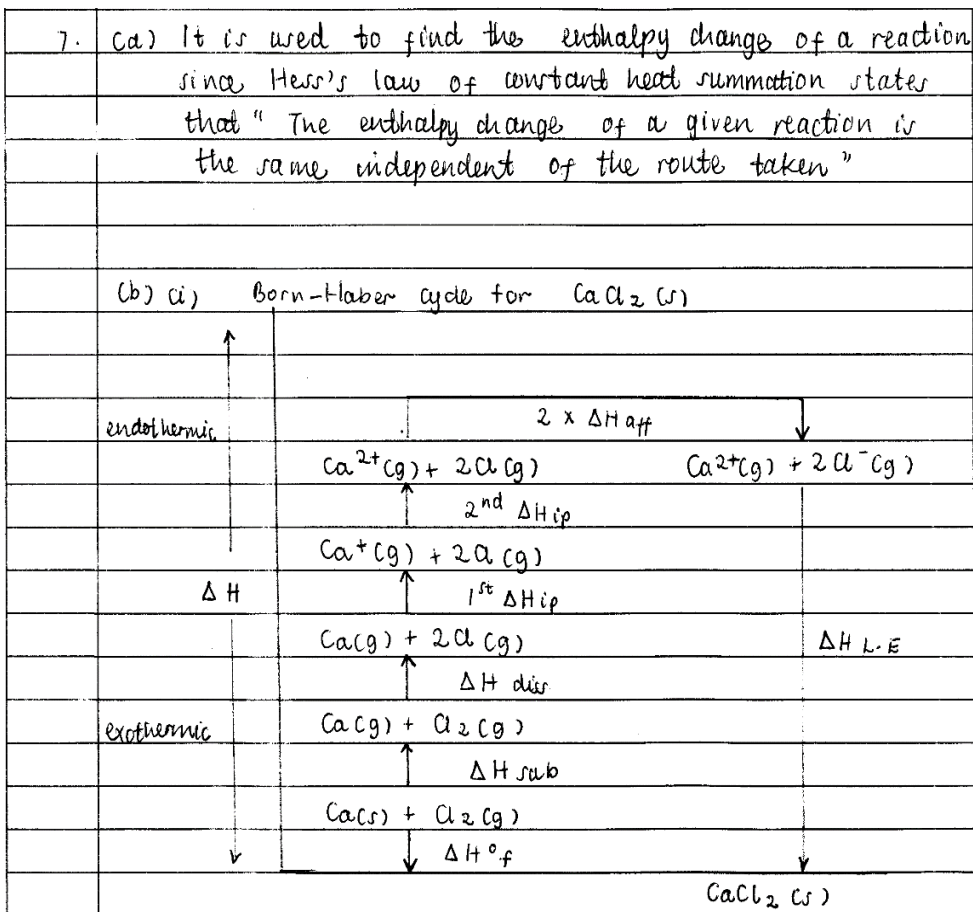 7. (a) It is used to find the enthalpy change of a reaction
since Hess's law of constant heat summation states
that " The enthalpy change of a given reaction is
the same independent of the route taken "
(b) (i) Born-Haber cycle for CaCl₂ (s)
2 x ΔH aff
endothermic
Ca²⁺(g) + 2Cl (g) Ca²⁺(g) + 2Cl⁻(g)
2nd ΔH ip
Ca⁺(g) + 2Cl (g)
ΔH 1st ΔH ip
Ca(g) + 2Cl (g) ΔH L.E
ΔH diss
exothermic Ca(g) + Cl₂ (g)
ΔH sub
Ca(s) + Cl₂ (g)
ΔH°f
CaCl₂ (s)